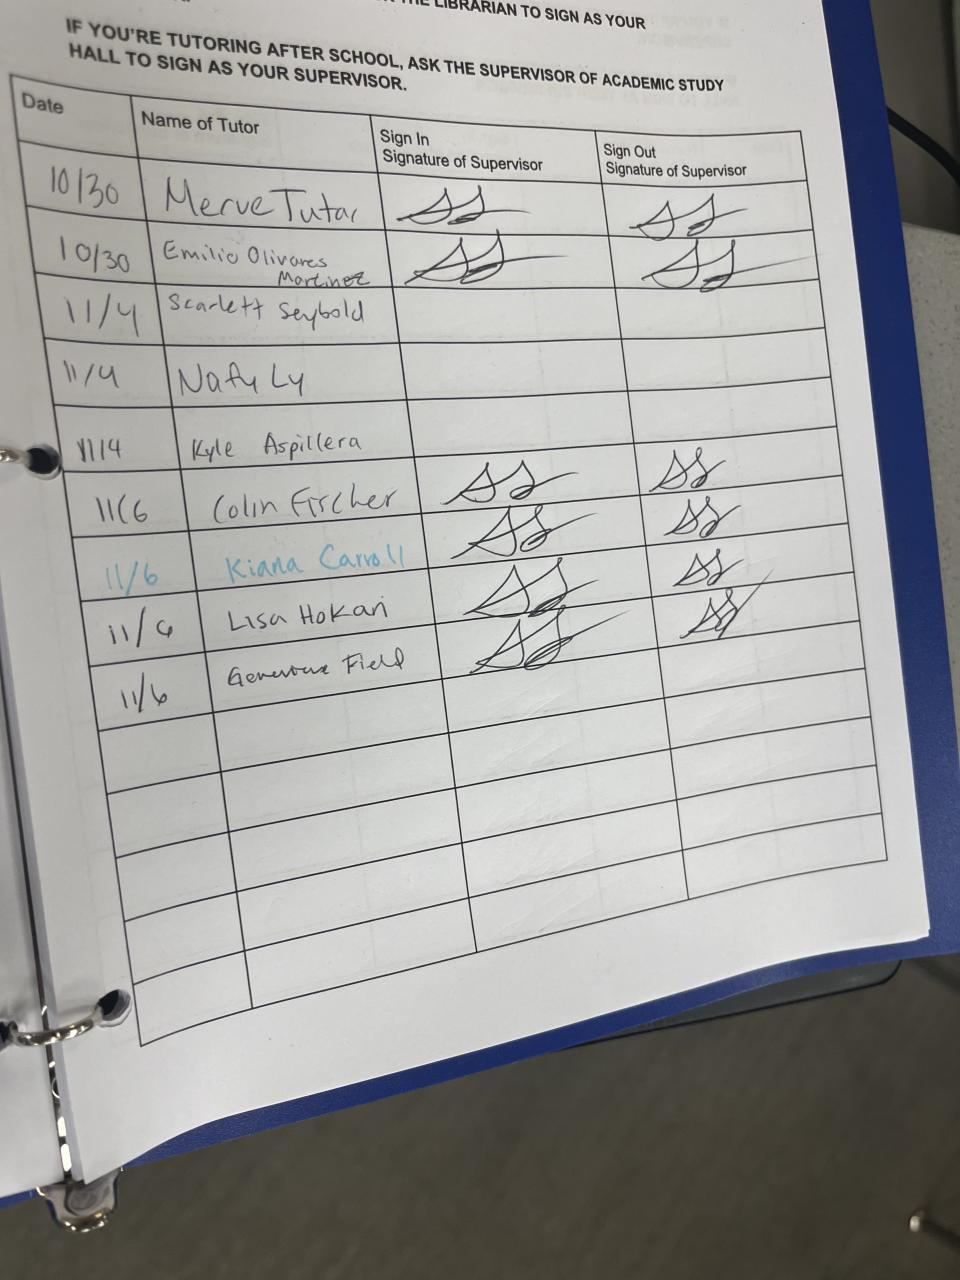 THE LIBRARIAN TO SIGN AS YOUR
IF YOU'RE TUTORING AFTER SCHOOL, ASK THE SUPERVISOR OF ACADEMIC STUDY
HALL TO SIGN AS YOUR SUPERVISOR.
Date Name of Tutor Sign In Signature of Supervisor Sign Out Signature of Supervisor
10/30 Merve Tutar
10/30 Emilio Olivares
Martinez
11/4 Scarlett Seybold
11/4 Nafy Ly
11/4 Kyle Aspillera
11/6 Colin Fircher
11/6 Kiana Carroll
11/6 Lisa Hokari
11/6 Field